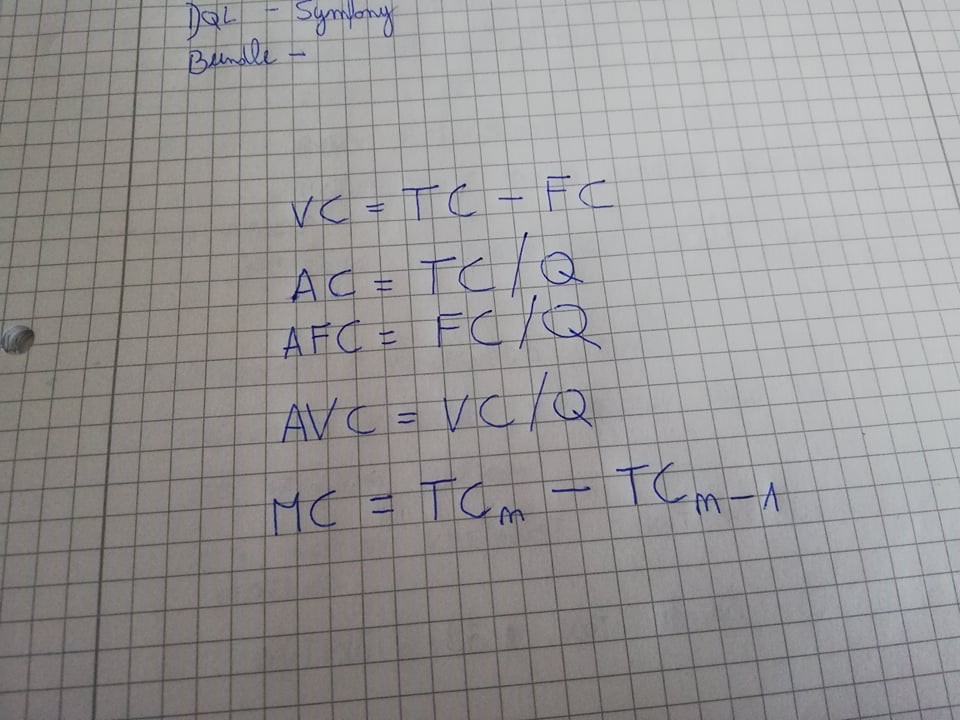 DQL - Symfony
Bundle -
VC = TC - FC
AC = TC/Q
AFC = FC/Q
AVC = VC/Q
MC = TCn - TCn-1